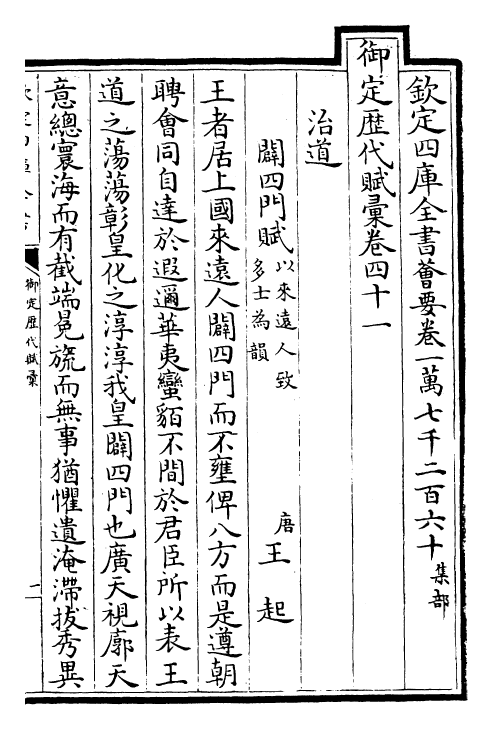 欽定四庫全書薈要卷一萬七千二百六十 集部
御定歷代賦彙卷四十一
治道
闢四門賦 以來遠人致多士為韻 唐 王起
王者居上國來遠人闢四門而不壅俾八方而是遵朝
聘會同自達於遐邇華夷蠻貊不間於君臣所以表王
道之蕩蕩彰皇化之淳淳我皇闢四門也廣天視廓天
意總寰海而有截端冕旒而無事猶懼遺淹滯拔秀異
御定歷代賦彙